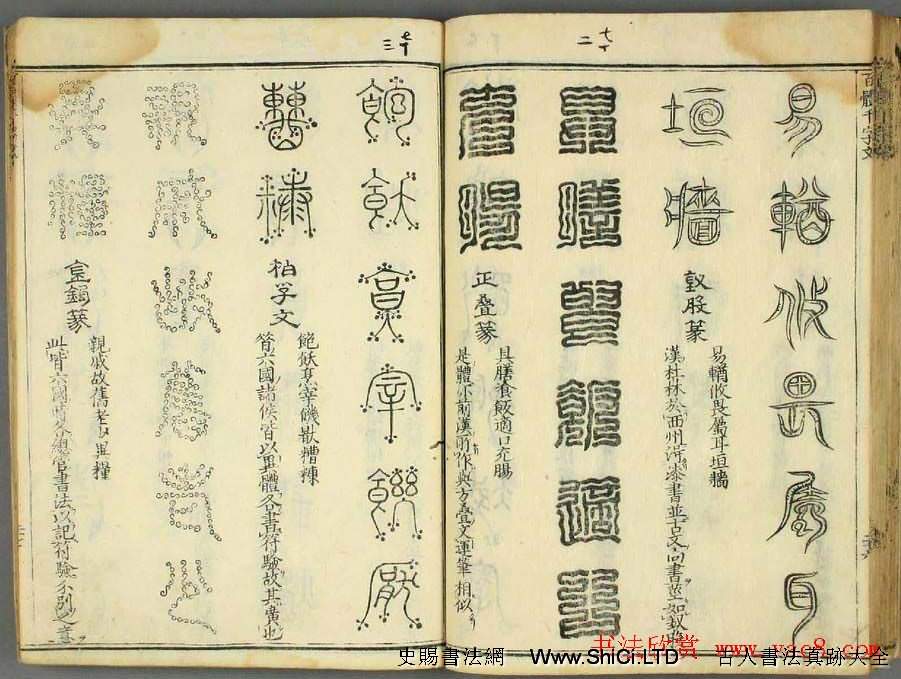 百體千字文
七十二
易輶攸畏屬耳
垣牆
釵股篆
易輶攸畏屬耳垣牆
漢杜林於西州得漆書並古文尚書並如釵股
具膳飧飯適口
充腸
正疊篆
具膳飧飯適口充腸
是體亦前漢所作與方疊文運筆相似
七十三
飽飫烹宰饑厭
糟糠
飽飫烹宰饑厭糟糠
昔六國諸侯皆以異體各書符驗故其廣也
親戚故舊老少
異糧
金錯篆
親戚故舊老少異糧
此皆六國時各總管書法以記符驗分別之意
书法欣赏 www.yac8.com
史賜書法網 Www.ShiCi.LTD 古人書法真跡大全